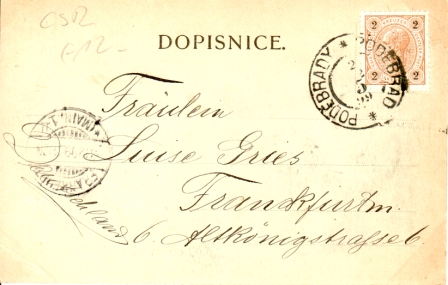 DOPISNICE.
2 2
PODĚBRADY * PODEBRAD *
99
Fräulein
Luise Gries
Frankfurt m.
6. Altkönigstrasse 6.
Deutschland